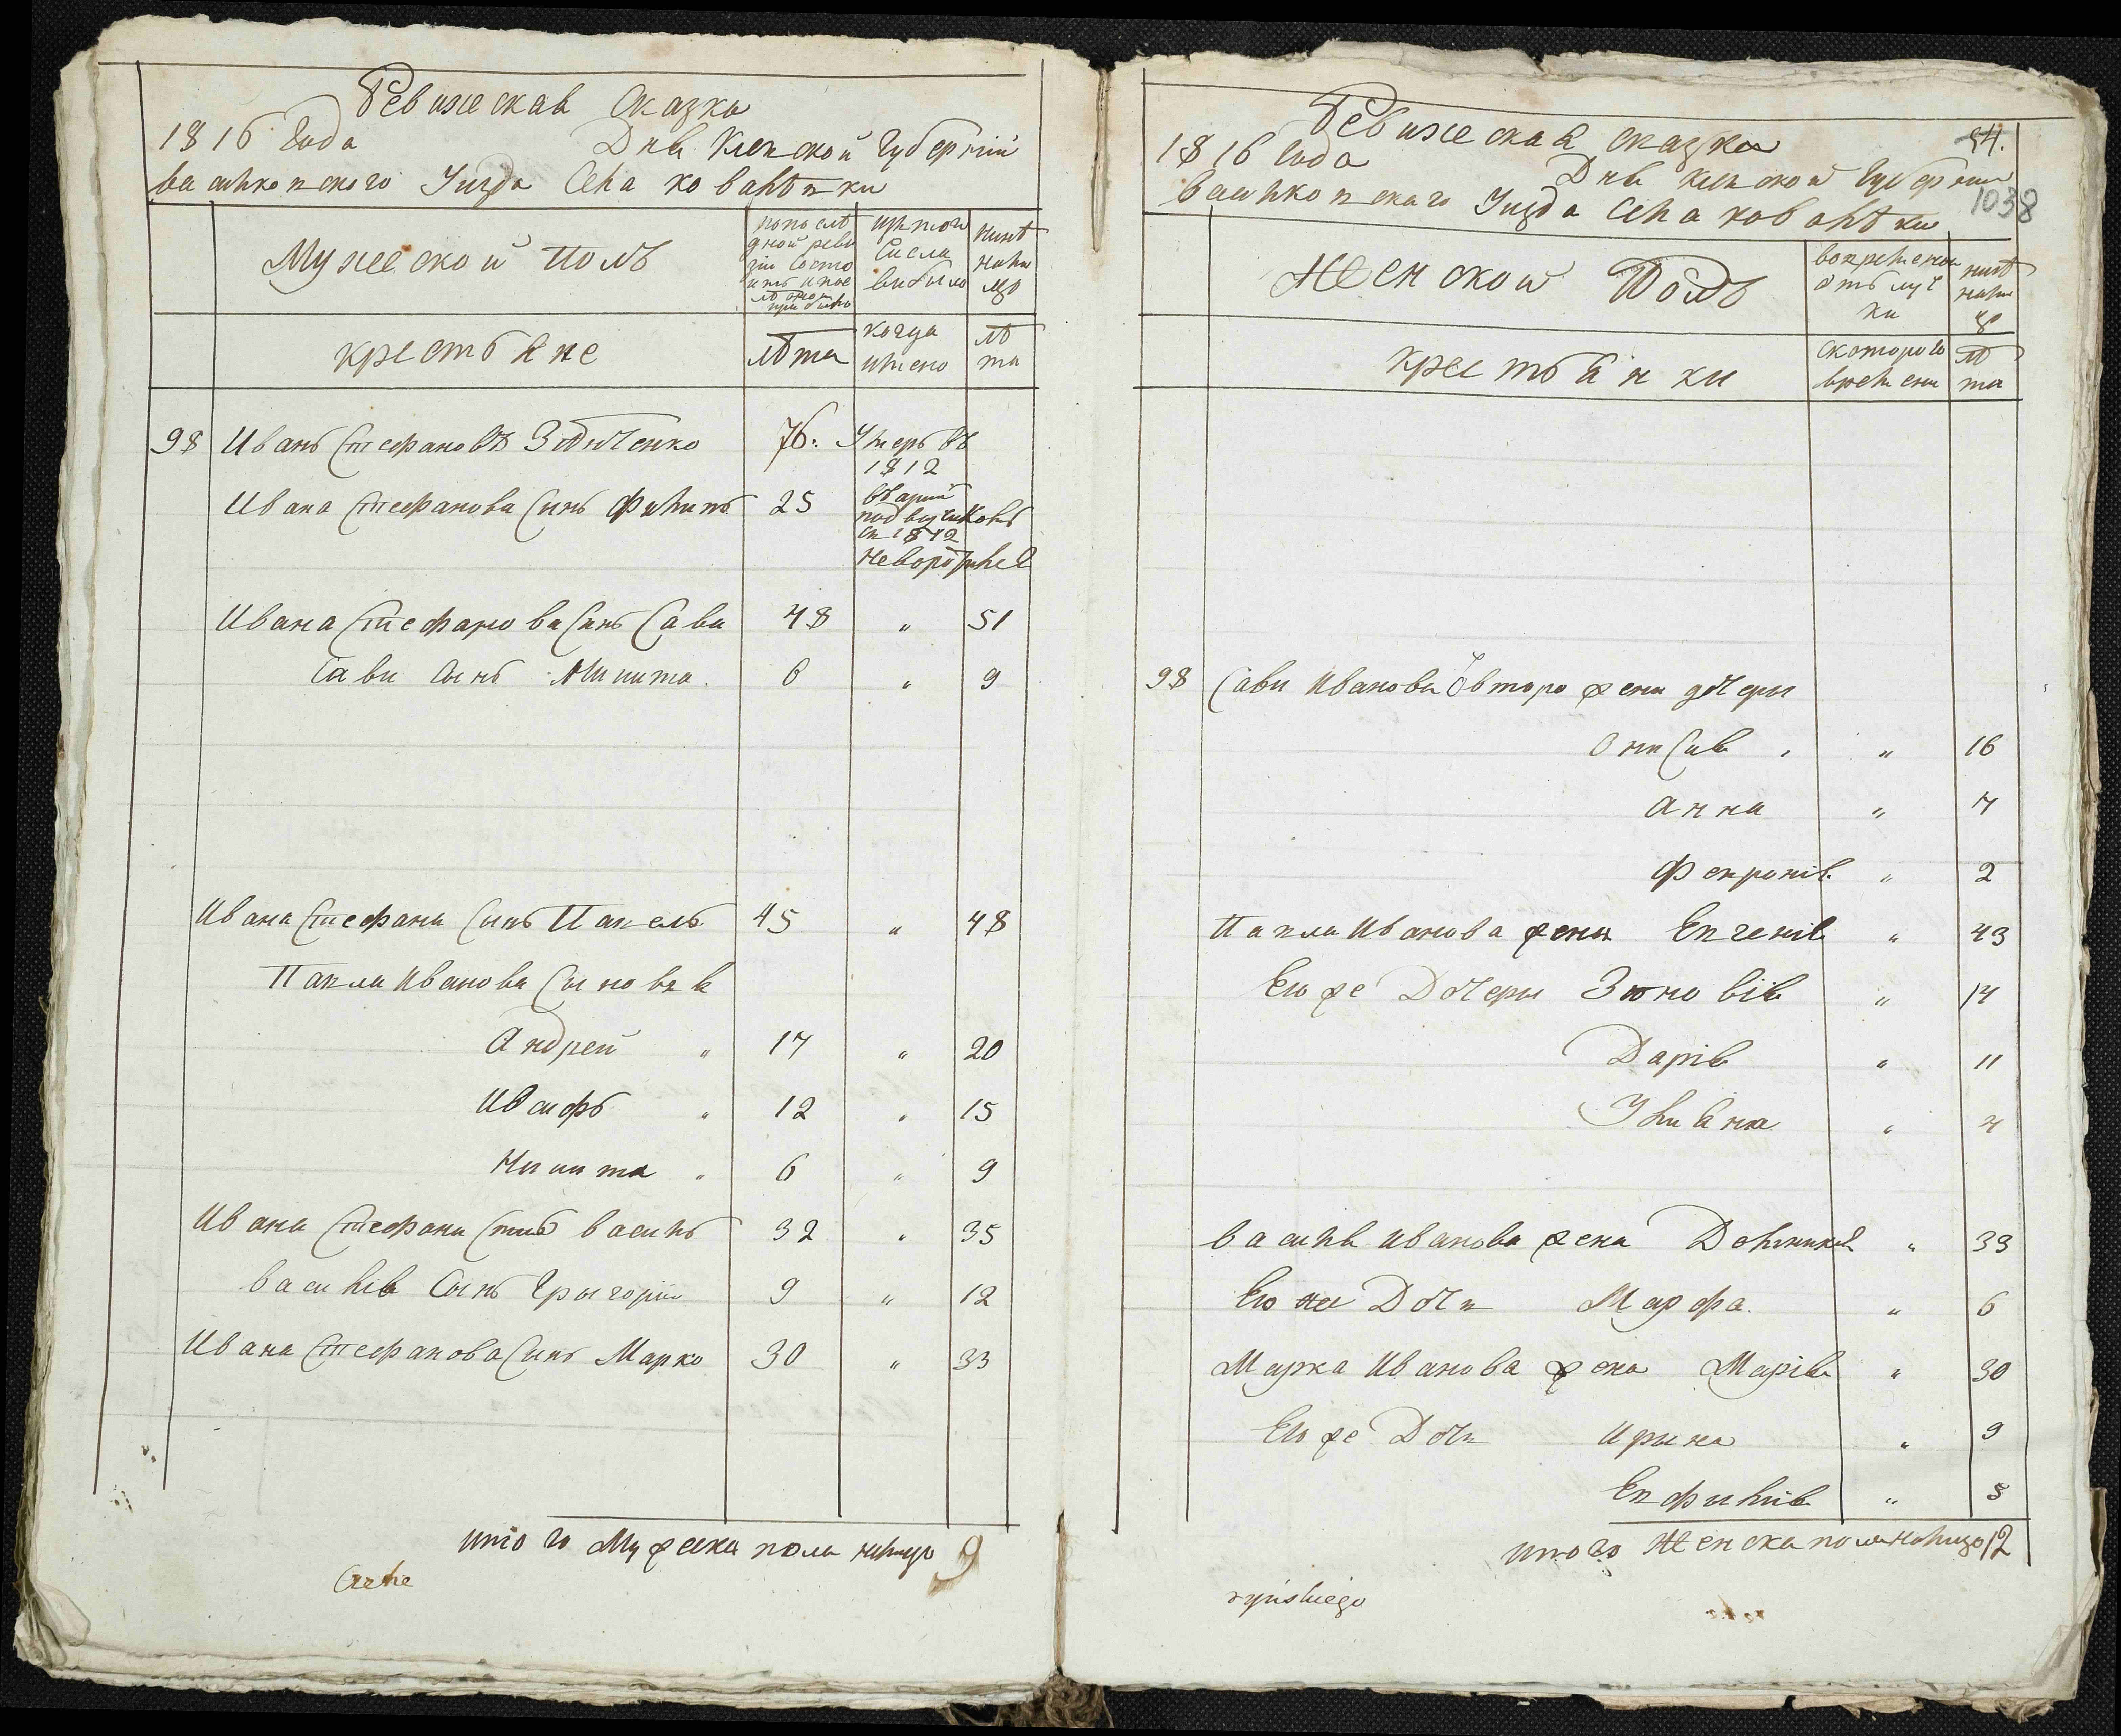 Ревижская Сказка
1816 Года Дня Киевской Губерний
васильковского Уизда Села ковалѣвки
Мужеской полъ
попослѣ
дной реви
зіи Состо
ислъ
исъ того
Сисла
вибило
нинѣ
нали
цо
крестьяне
лѣта
когда
имено
лѣ
та
98 Иванъ Стефановъ 76. Умеръ въ
1812
Ивана Стефанова Синъ Филипъ 25 въ армiи
подводчиковъ
1812
неворотился
Ивана Стефанова Синъ Сава 48 " 51
Сави Сынъ Никита. 6 " 9
Ивана Стефана Сынъ Павелъ 45 " 48
Павла Иванова Сыновья
Андрей " 17 " 20
Иосифъ " 12 " 15
Никита " 6 " 9
Ивана Стефана Синъ василь 32 " 35
василя Сынъ Грыгорий 9 " 12
Ивана Стефанова Синъ Марко 30 " 33
итого Мужеска пола налицо 9
Ревижская сказка
54.
1816 Года Дня киевской Губернии
1038
васильковскаго Уизда Села ковалѣвки
Женской Полъ
вовременой
отлуч
ки
нинѣ
нали
цо
крестьянки
скоторого
времени
лѣ
та
98 Сави Иванова второ жени дочеры
Онисия " 16
Анна " 7
Февронія " 2
Павла Иванова жены Евгенія " 43
Его же Дочеры Зѣновія " 14
Дарія " 11
Улияна " 4
василя иванова жена Домникия " 33
Его же Дочь Марфа. " 6
Марка Иванова жена Марія " 30
Его же Дочь Ирына " 9
Евфимія " 5
итого Женска пола налицо 12